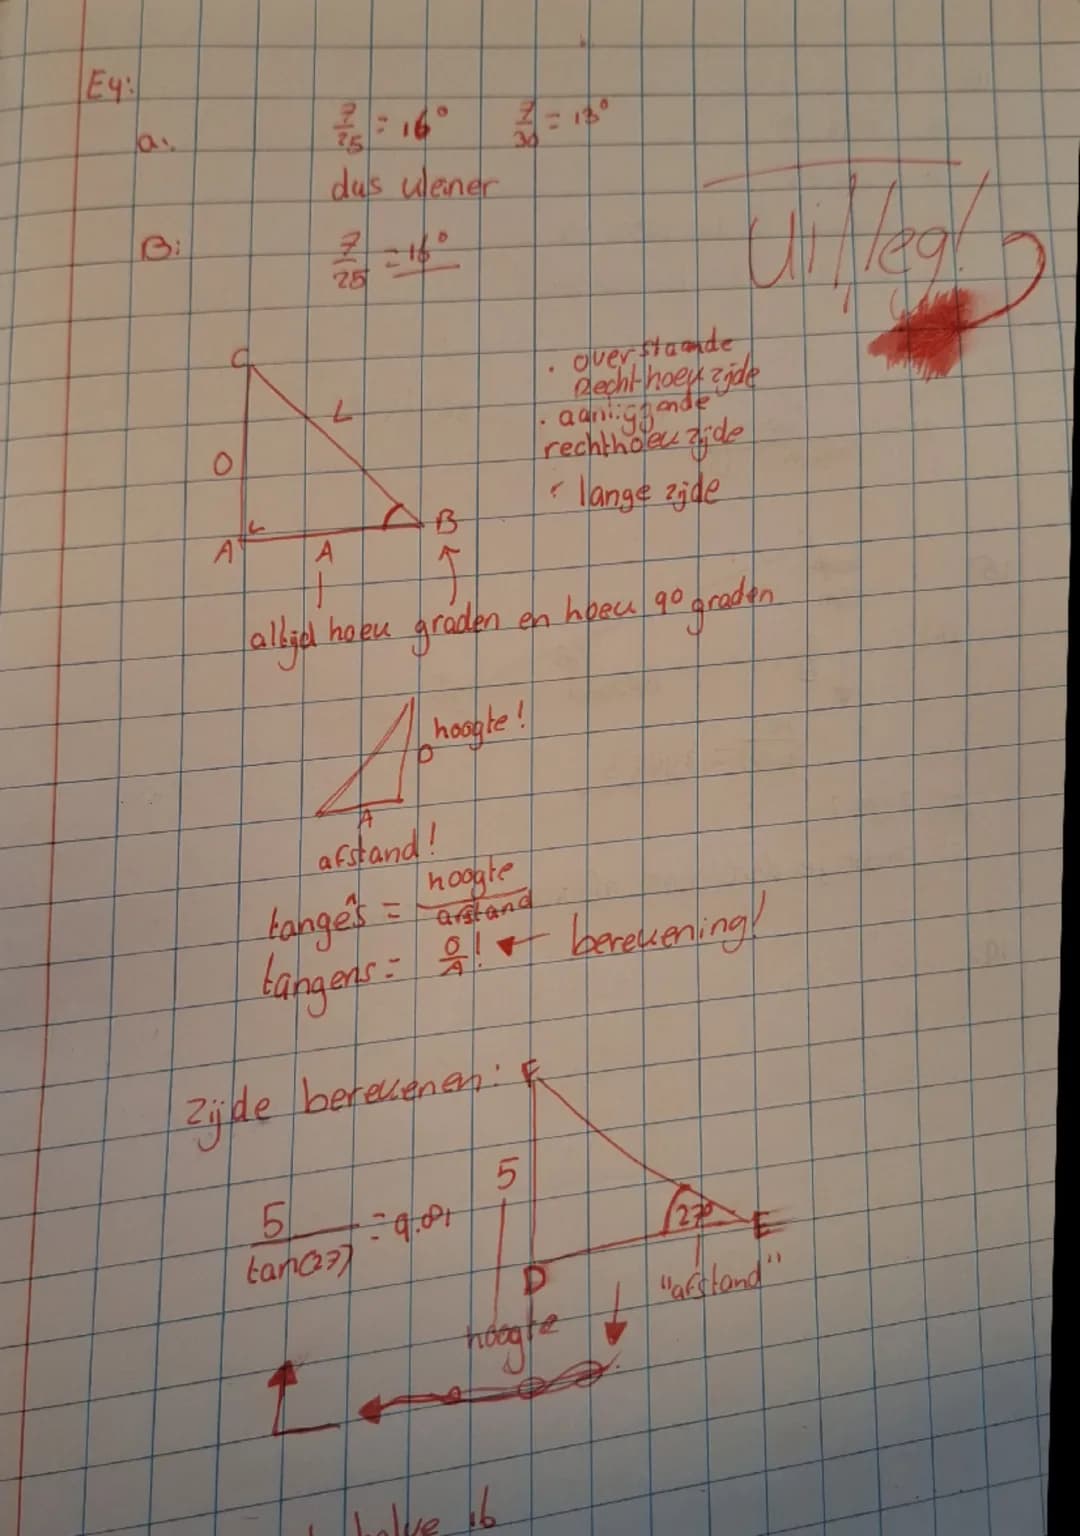 E4:
a. 7/25 = 16° 7/30 = 13°
dus kleiner
B: 7/25 = 16°
Uitleg!
C
L
O
A
A
B
• overstaande
Rechthoek zijde
• aanliggende
rechthoek zijde
• lange zijde
altijd hoek graden en hoek 90 graden
hoogte!
O
A
afstand!
tangens = hoogte/afstand
tangens = O/A! berekening!
zijde berekenen:
F
5
27°
E
D
5/tan(27) = 9.81
"afstand"
hoogte
halve 16